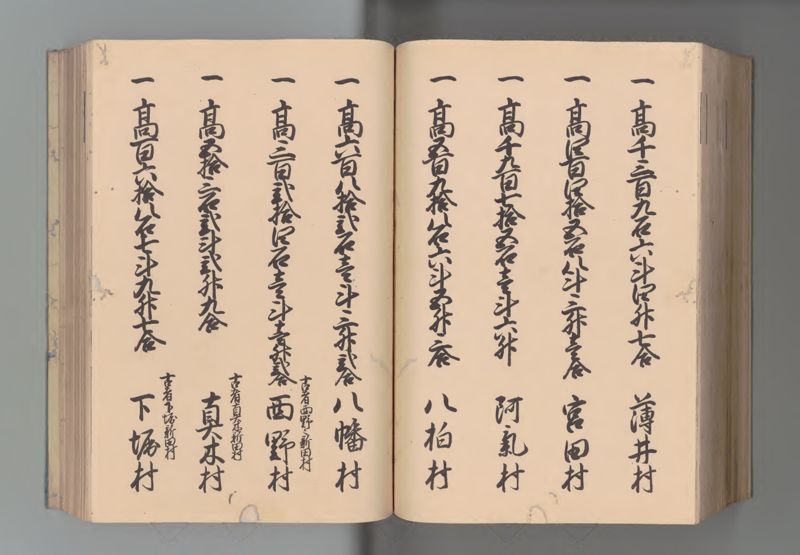 一 高千三百九石六斗四升七合 薄井村
一 高四百四拾五石八斗三升壱合 宮田村
一 高千九百七拾五石壱斗六升 阿気村
一 高五百九拾八石六斗五升三合 八柏村
一 高六百八拾弐石壱斗三升弐合 八幡村
古者西野之新田村
一 高三百弐拾四石壱斗壱升弐合 西野村
古者真木新田村
一 高五拾三石弐斗弐升九合 真木村
古者下堀新田村
一 高百六拾八石七斗九升七合 下堀村